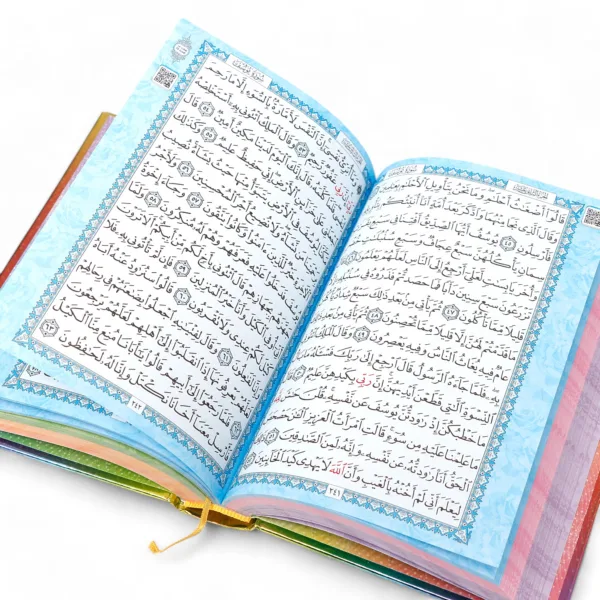 قَالُوٓا۟ أَضْغَٰثُ أَحْلَٰمٍ وَمَا نَحْنُ بِتَأْوِيلِ ٱلْأَحْلَٰمِ بِعَٰلِمِينَ ٤٤
وَقَالَ ٱلَّذِى نَجَا مِنْهُمَا وَٱدَّكَرَ بَعْدَ أُمَّةٍ أَنَا۠ أُنَبِّئُكُم بِتَأْوِيلِهِۦ
فَأَرْسِلُونِ ٤٥ يُوسُفُ أَيُّهَا ٱلصِّدِّيقُ أَفْتِنَا فِى سَبْعِ بَقَرَٰتٍ
سِمَانٍ يَأْكُلُهُنَّ سَبْعٌ عِجَافٌ وَسَبْعِ سُنۢبُلَٰتٍ خُضْرٍ
وَأُخَرَ يَابِسَٰتٍ لَّعَلِّىٓ أَرْجِعُ إِلَى ٱلنَّاسِ لَعَلَّهُمْ يَعْلَمُونَ ٤٦ قَالَ
تَزْرَعُونَ سَبْعَ سِنِينَ دَأَبًا فَمَا حَصَدتُّمْ فَذَرُوهُ فِى سُنۢبُلِهِۦٓ إِلَّا
قَلِيلًا مِّمَّا تَأْكُلُونَ ٤٧ ثُمَّ يَأْتِى مِنۢ بَعْدِ ذَٰلِكَ سَبْعٌ شِدَادٌ يَأْكُلْنَ
مَا قَدَّمْتُمْ لَهُنَّ إِلَّا قَلِيلًا مِّمَّا تُحْصِنُونَ ٤٨ ثُمَّ يَأْتِى مِنۢ بَعْدِ ذَٰلِكَ
عَامٌ فِيهِ يُغَاثُ ٱلنَّاسُ وَفِيهِ يَعْصِرُونَ ٤٩ وَقَالَ ٱلْمَلِكُ ٱئْتُونِى
بِهِۦ فَلَمَّا جَآءَهُ ٱلرَّسُولُ قَالَ ٱرْجِعْ إِلَىٰ رَبِّكَ فَسْـَٔلْهُ مَا بَالُ
ٱلنِّسْوَةِ ٱلَّٰتِى قَطَّعْنَ أَيْدِيَهُنَّ إِنَّ رَبِّى بِكَيْدِهِنَّ عَلِيمٌ ٥٠ قَالَ
مَا خَطْبُكُنَّ إِذْ رَٰوَدتُّنَّ يُوسُفَ عَن نَّفْسِهِۦ قُلْنَ حَٰشَ لِلَّهِ
مَا عَلِمْنَا عَلَيْهِ مِن سُوٓءٍ قَالَتِ ٱمْرَأَتُ ٱلْعَزِيزِ ٱلْـَٰٔنَ حَصْحَصَ
ٱلْحَقُّ أَنَا۠ رَٰوَدتُّهُۥ عَن نَّفْسِهِۦ وَإِنَّهُۥ لَمِنَ ٱلصَّٰدِقِينَ ٥١ ذَٰلِكَ
لِيَعْلَمَ أَنِّى لَمْ أَخُنْهُ بِٱلْغَيْبِ وَأَنَّ ٱللَّهَ لَا يَهْدِى كَيْدَ ٱلْخَآئِنِينَ ٥٢
٢٤١
سُورَةُ يُوسُفَ
وَمَآ أُبَرِّئُ نَفْسِىٓ إِنَّ ٱلنَّفْسَ لَأَمَّارَةٌۢ بِٱلسُّوٓءِ إِلَّا مَا رَحِمَ
رَبِّىٓ إِنَّ رَبِّى غَفُورٌ رَّحِيمٌ ٥٣ وَقَالَ ٱلْمَلِكُ ٱئْتُونِى بِهِۦٓ أَسْتَخْلِصْهُ
لِنَفْسِى فَلَمَّا كَلَّمَهُۥ قَالَ إِنَّكَ ٱلْيَوْمَ لَدَيْنَا مَكِينٌ أَمِينٌ ٥٤ قَالَ
ٱجْعَلْنِى عَلَىٰ خَزَآئِنِ ٱلْأَرْضِ إِنِّى حَفِيظٌ عَلِيمٌ ٥٥ وَكَذَٰلِكَ
مَكَّنَّا لِيُوسُفَ فِى ٱلْأَرْضِ يَتَبَوَّأُ مِنْهَا حَيْثُ يَشَآءُ نُصِيبُ
بِرَحْمَتِنَا مَن نَّشَآءُ وَلَا نُضِيعُ أَجْرَ ٱلْمُحْسِنِينَ ٥٦ وَلَأَجْرُ
ٱلْـَٔاخِرَةِ خَيْرٌ لِّلَّذِينَ ءَامَنُوا۟ وَكَانُوا۟ يَتَّقُونَ ٥٧ وَجَآءَ إِخْوَةُ
يُوسُفَ فَدَخَلُوا۟ عَلَيْهِ فَعَرَفَهُمْ وَهُمْ لَهُۥ مُنكِرُونَ ٥٨
وَلَمَّا جَهَّزَهُم بِجَهَازِهِمْ قَالَ ٱئْتُونِى بِأَخٍ لَّكُم مِّنْ أَبِيكُمْ أَلَا تَرَوْنَ
أَنِّىٓ أُوفِى ٱلْكَيْلَ وَأَنَا۠ خَيْرُ ٱلْمُنزِلِينَ ٥٩ فَإِن لَّمْ تَأْتُونِى بِهِۦ فَلَا
كَيْلَ لَكُمْ عِندِى وَلَا تَقْرَبُونِ ٦٠ قَالُوا۟ سَنُرَٰوِدُ عَنْهُ أَبَاهُ
وَإِنَّا لَفَٰعِلُونَ ٦١ وَقَالَ لِفِتْيَٰنِهِ ٱجْعَلُوا۟ بِضَٰعَتَهُمْ فِى رِحَالِهِمْ
لَعَلَّهُمْ يَعْرِفُونَهَآ إِذَا ٱنقَلَبُوٓا۟ إِلَىٰٓ أَهْلِهِمْ لَعَلَّهُمْ يَرْجِعُونَ
٦٢ فَلَمَّا رَجَعُوٓا۟ إِلَىٰٓ أَبِيهِمْ قَالُوا۟ يَٰٓأَبَانَا مُنِعَ مِنَّا ٱلْكَيْلُ
فَأَرْسِلْ مَعَنَآ أَخَانَا نَكْتَلْ وَإِنَّا لَهُۥ لَحَٰفِظُونَ ٦٣
٢٤٢